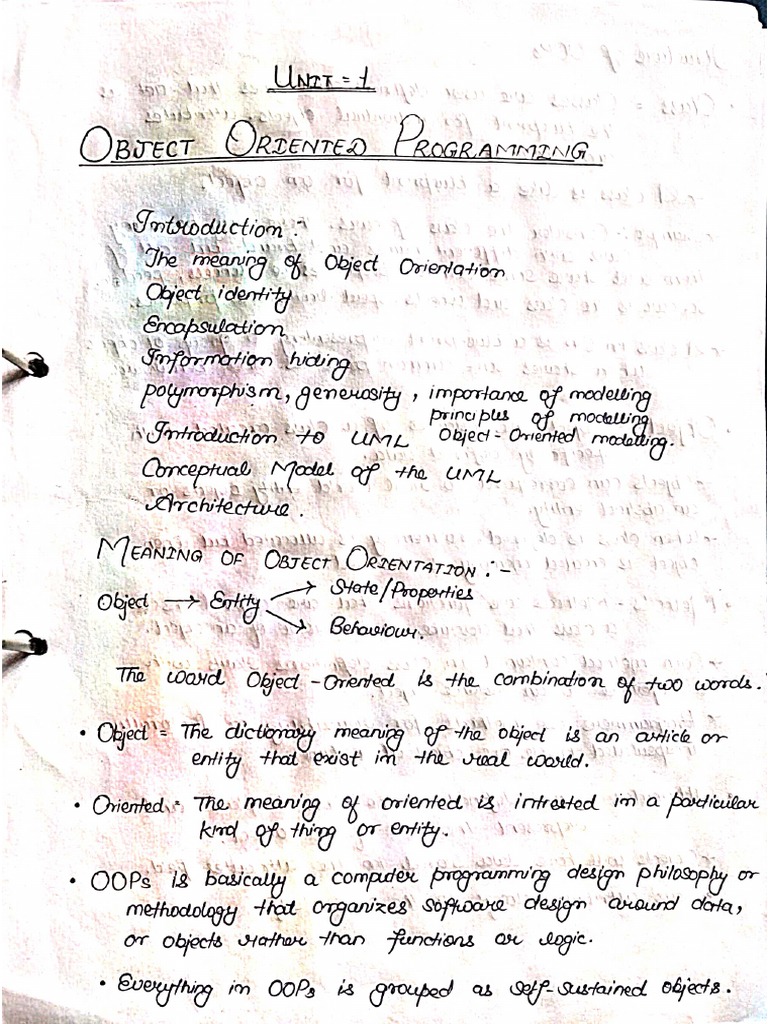 UNIT = 1
OBJECT ORIENTED PROGRAMMING
Introduction :-
The meaning of Object Orientation
Object identity
Encapsulation
Information hiding
polymorphism, generosity, importance of modelling
principles of modelling
Introduction to UML Object-Oriented modelling.
Conceptual Model of the UML
Architecture.
MEANING OF OBJECT ORIENTATION :-
Object → Entity → State/Properties
→ Behaviour.
The word Object-Oriented is the combination of two words.
• Object = The dictionary meaning of the object is an article or
entity that exist in the real world.
• Oriented = The meaning of oriented is intrested in a particular
kind of thing or entity.
• OOPs is basically a computer programming design philosophy or
methodology that organizes software design around data,
or objects rather than functions or logic.
• Everything in OOPs is grouped as self-sustained objects.